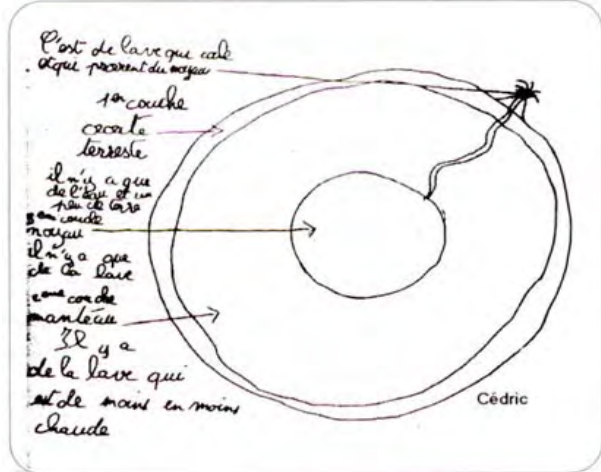 C'est de lave que cole
et qui provient du noyau
1er couche
ceorte
terreste
il n'y a que
de l'eau et un
peu de terre
3em couche
noyau
il n'y a que
de la lave
2eme couche
mantéau
Il y a
de la lave qui
est de moins en moins
chaude
Cédric